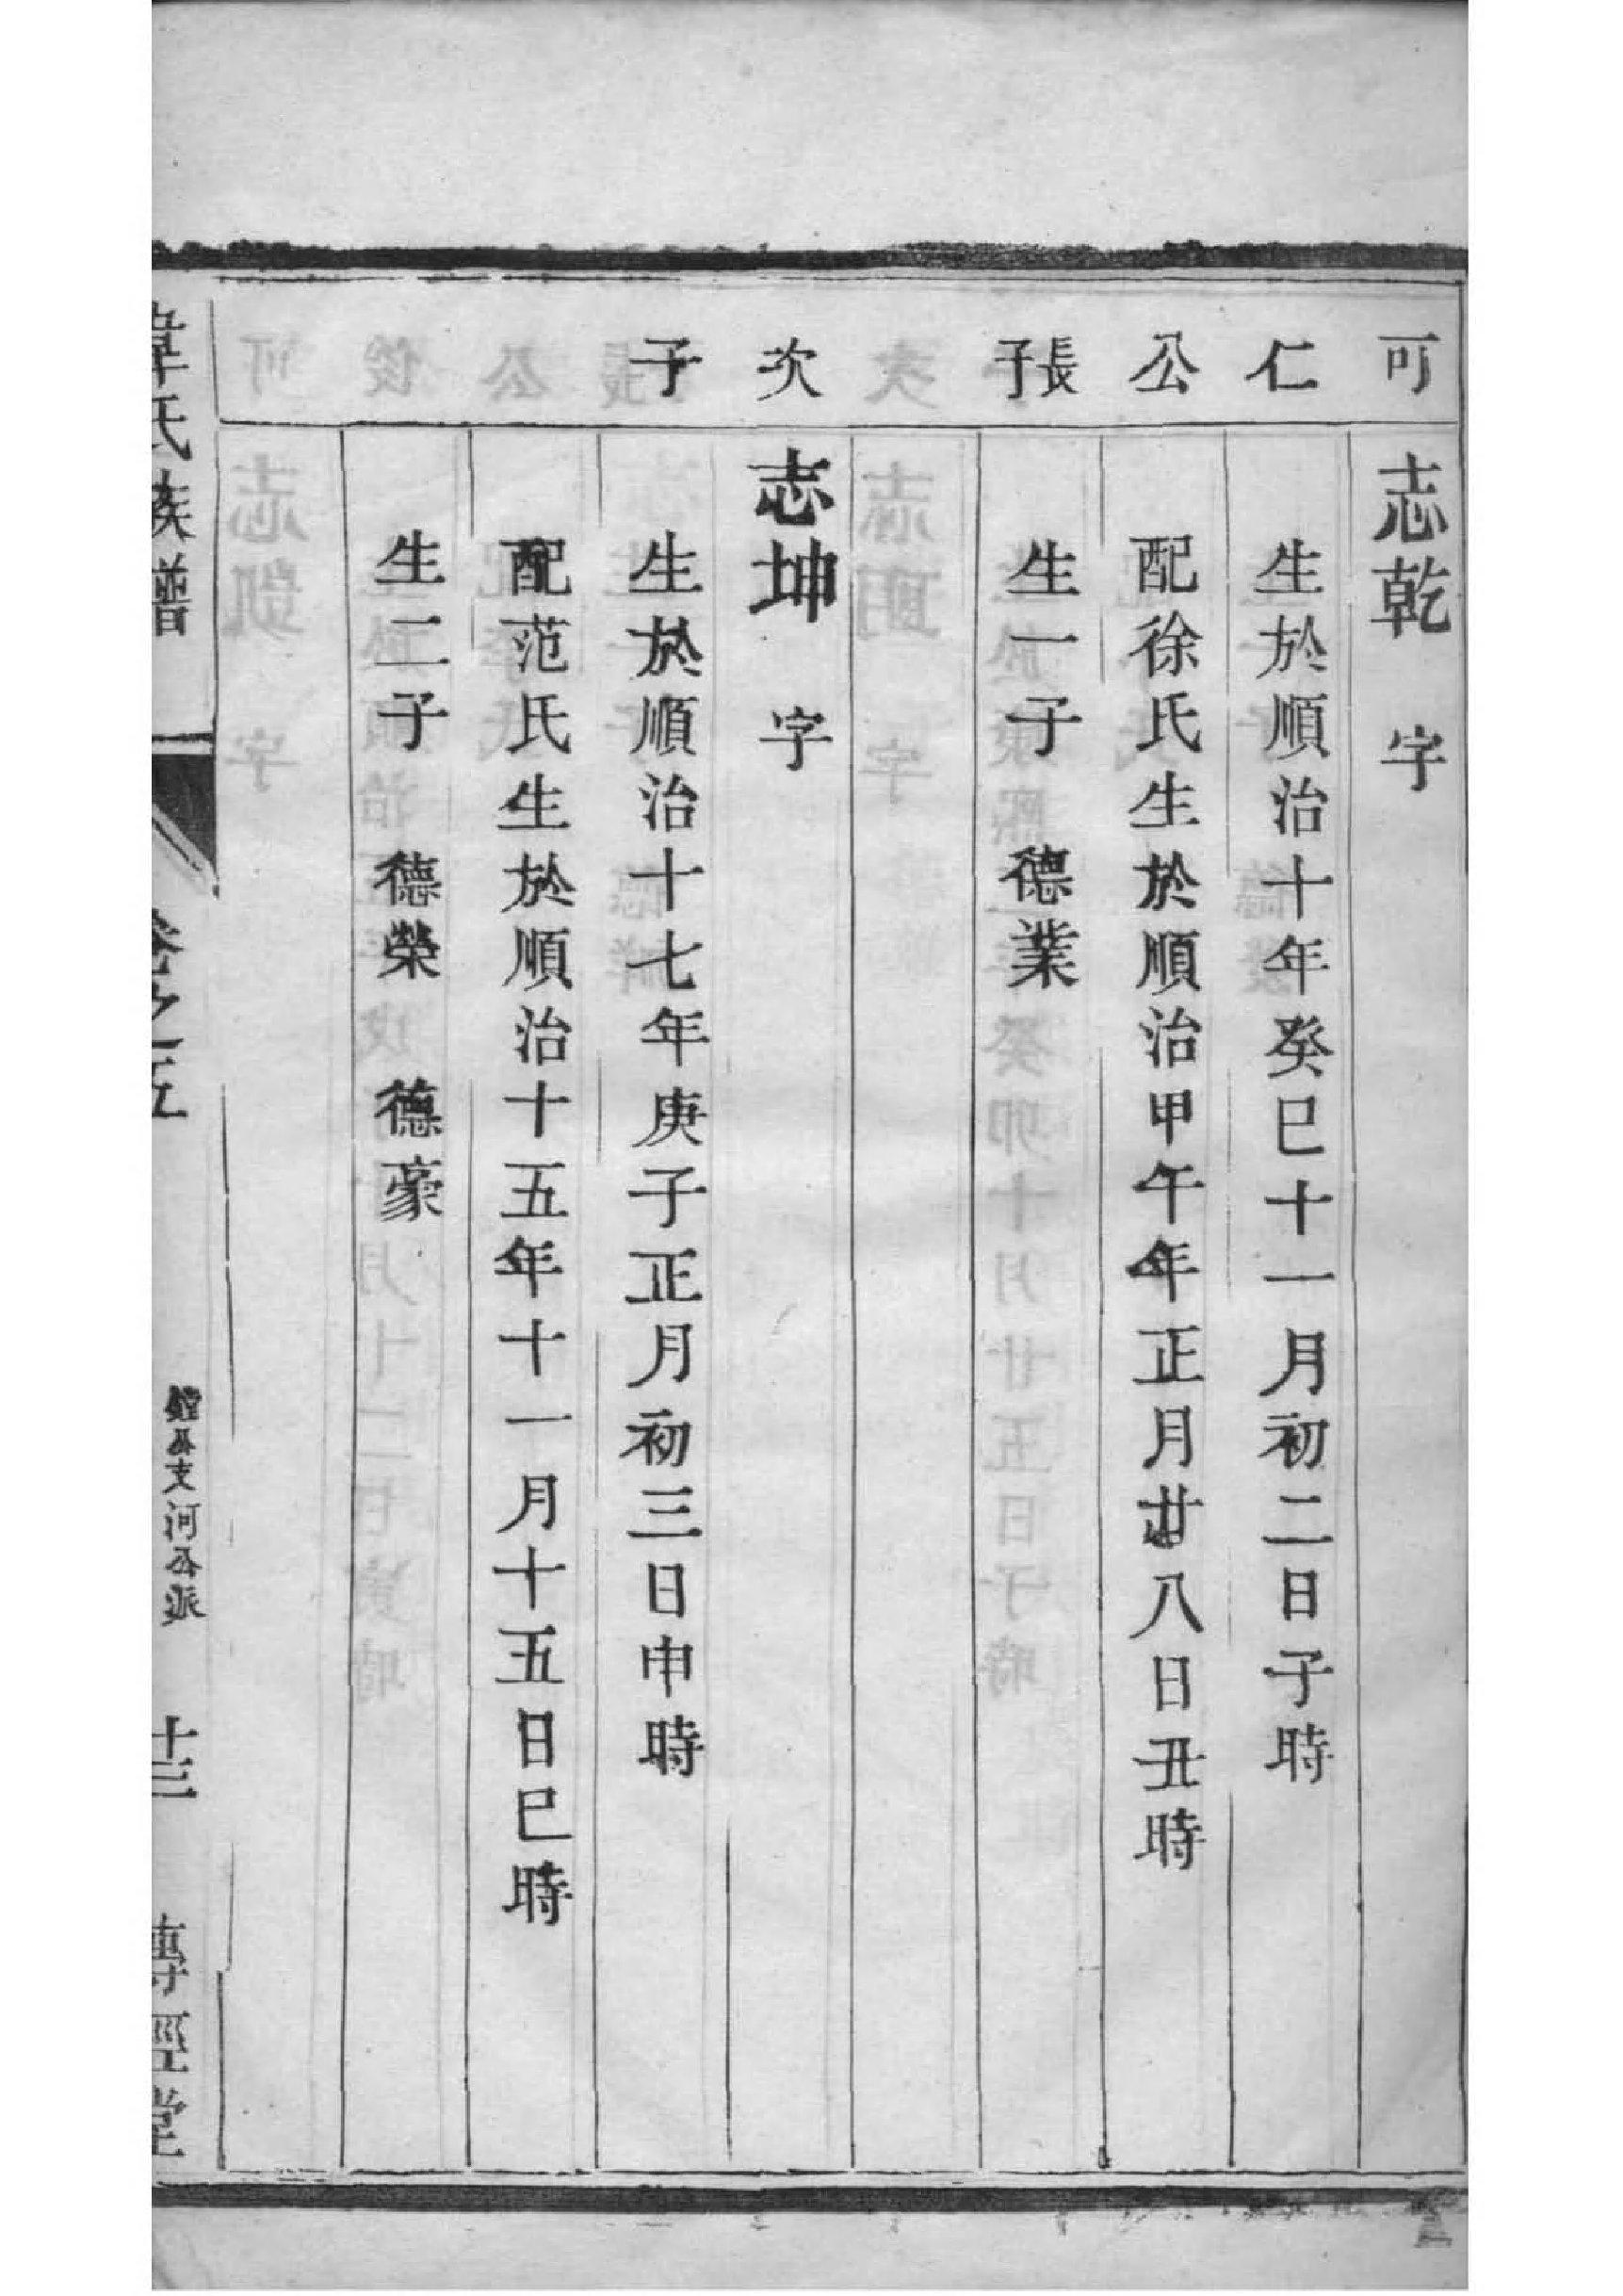 可 志乾 字
仁 生於順治十年癸巳十一月初二日子時
公 配徐氏生於順治甲午年正月廿八日丑時
長子 生一子 德業
次 志坤 字
子 生於順治十七年庚子正月初三日申時
配范氏生於順治十五年十一月十五日巳時
生二子 德榮 德豪
韋氏族譜 卷之五 公支河公派 十三 傳經堂